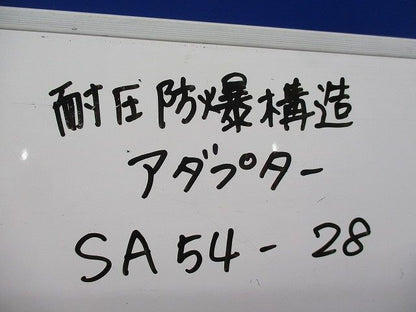 耐圧防爆構造
アダプター
SA54-28